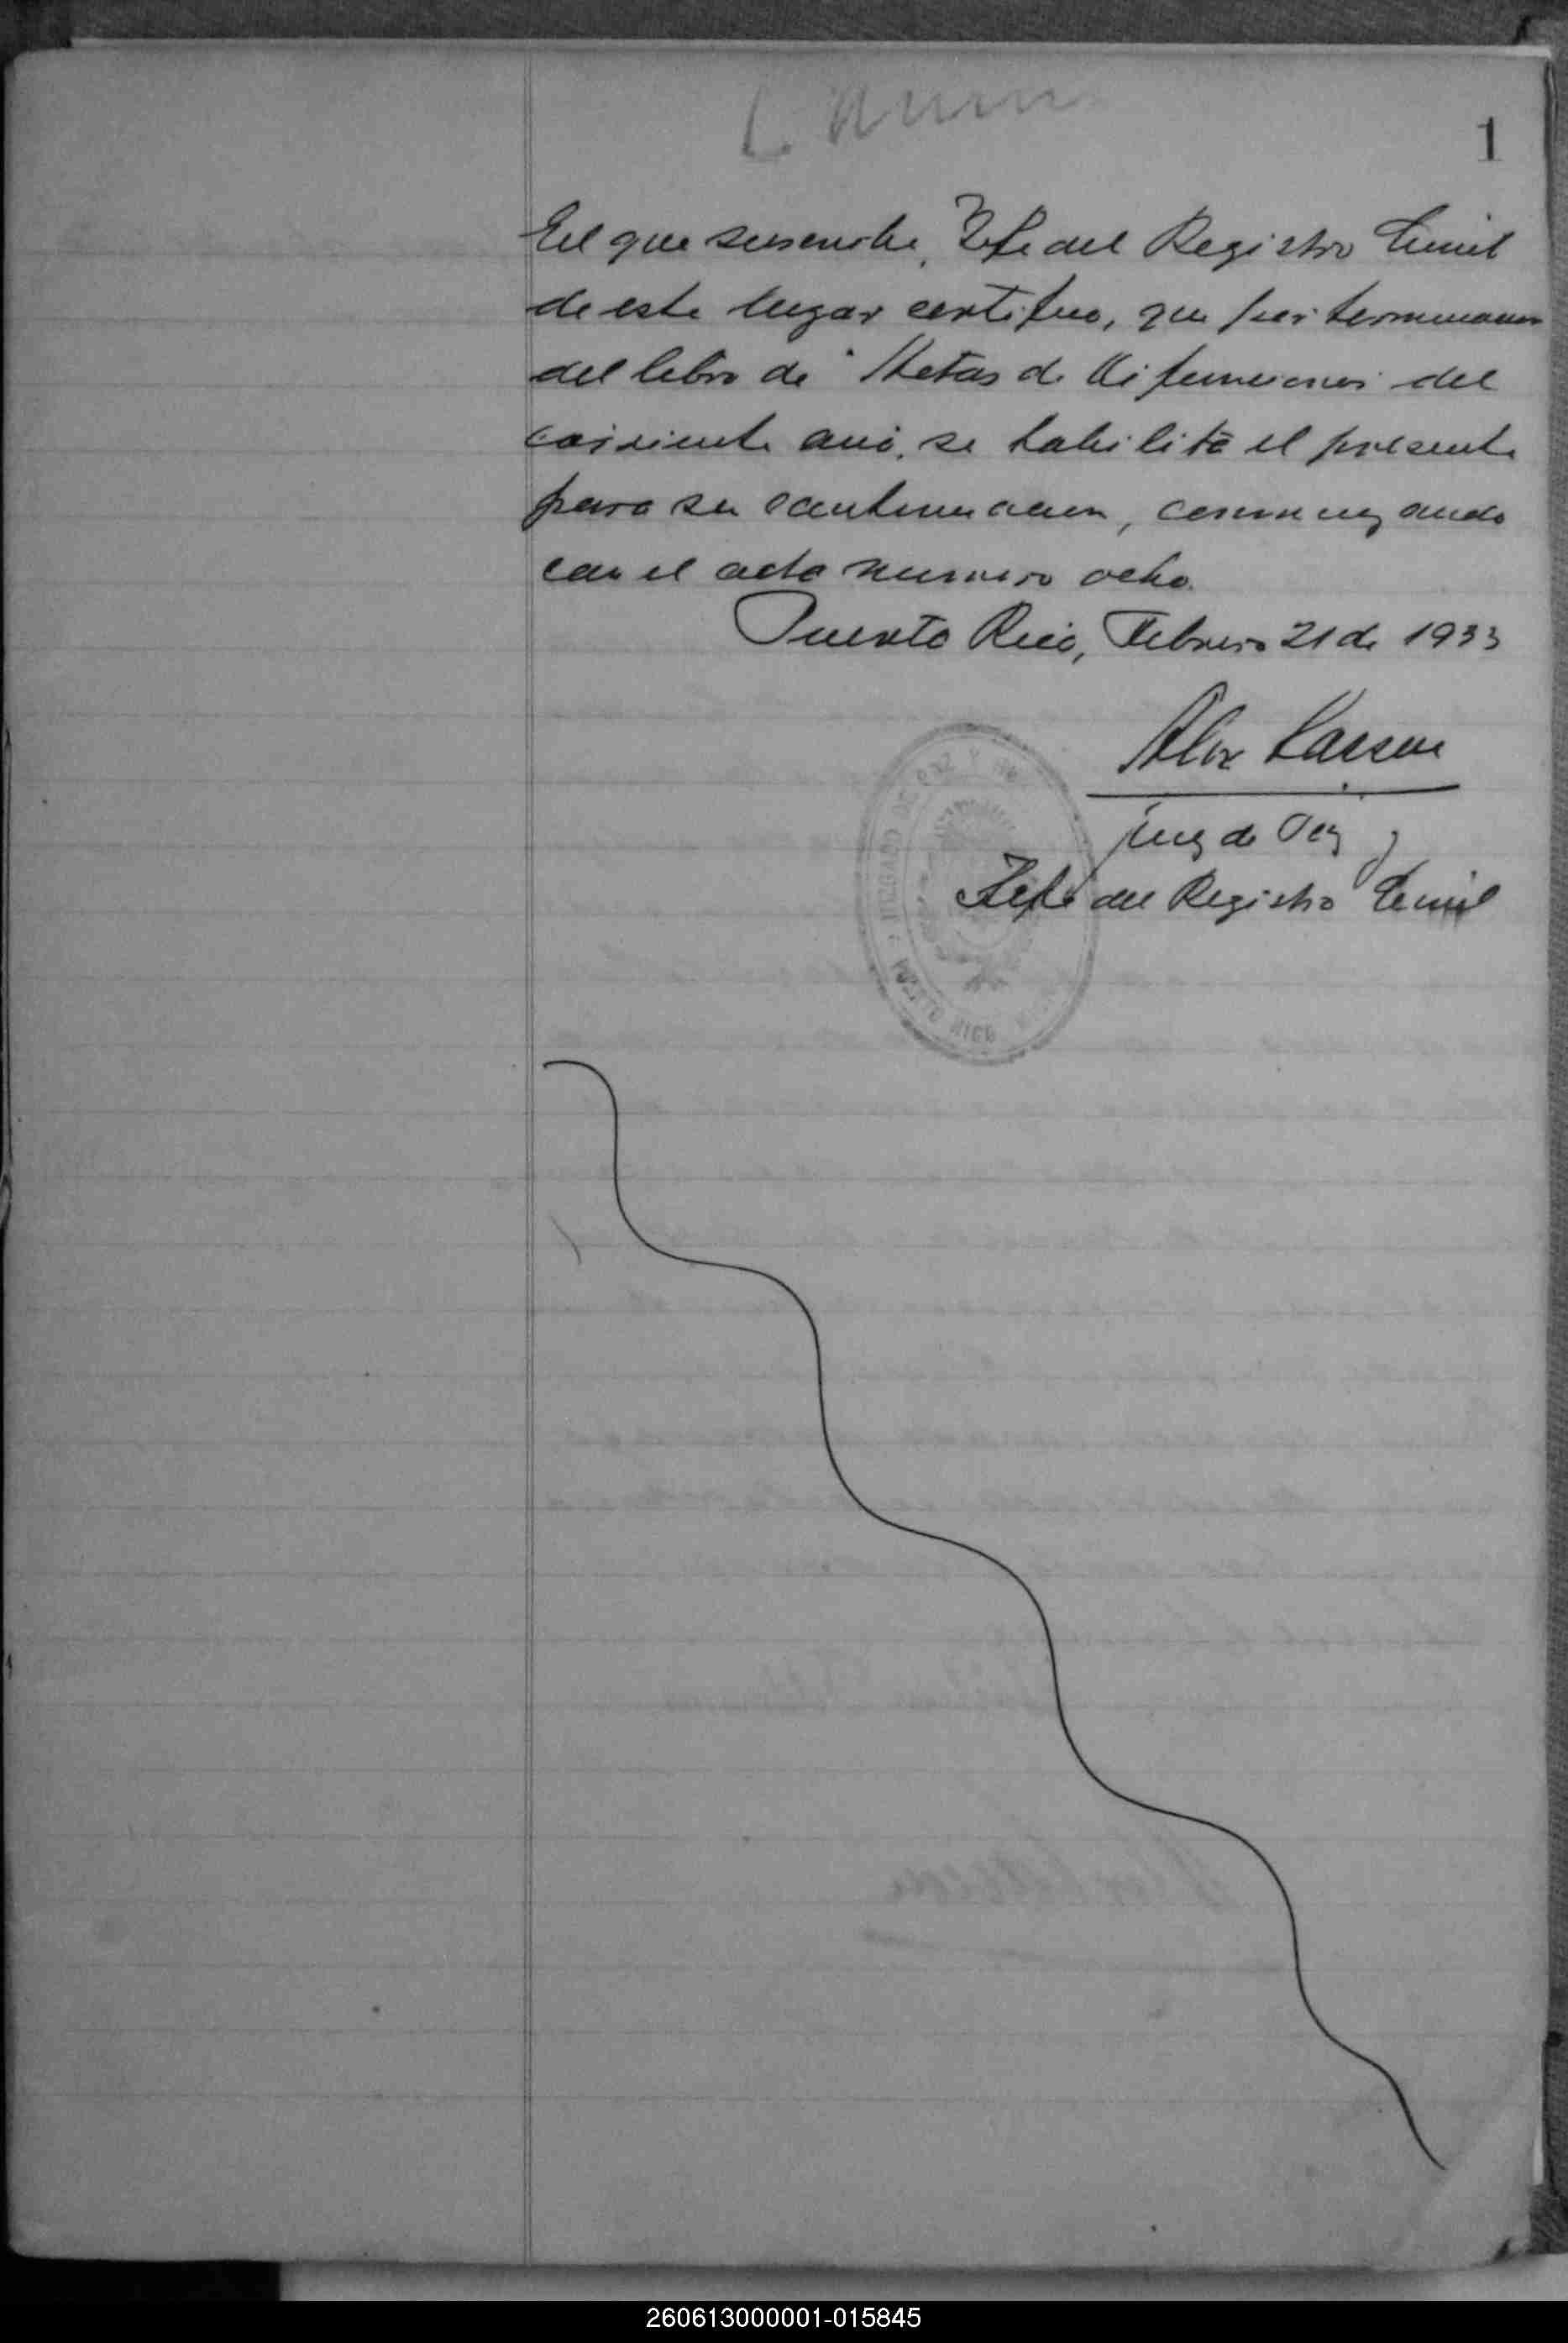 1
El que suscribe, Jefe del Registro Civil
de este lugar certifico, que por terminacion
del libro de Actas de Defunciones del
corriente año, se habilita el presente
para su continuacion, comenzando
con el acta numero ocho.
Puerto Rico, Febrero 21 de 1933
Alex
Juez de Paz y
Jefe del Registro Civil
JUZGADO DE PAZ Y
PUERTO RICO
260613000001-015845